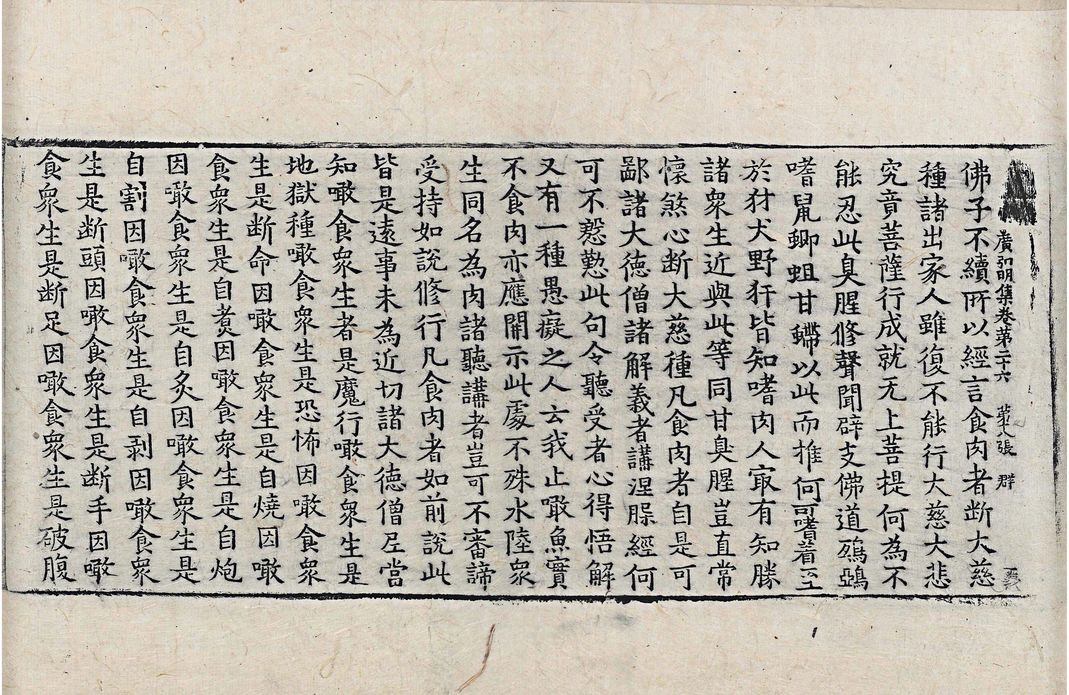 廣弘明集卷第二十六 第七張 群
佛子不續所以經言食肉者断大慈
種諸出家人雖復不能行大慈大悲
究竟菩薩行成就无上菩提何為不
能忍此臭腥修聲聞辟支佛道鵄鵶
嗜鼠蝍蛆甘螮以此而推何可嗜着至
於犲犬野犴皆知嗜肉人㝡有知勝
諸衆生近與此等同甘臭腥豈直常
懷煞心断大慈種凡食肉者自是可
鄙諸大徳僧諸解義者講涅脲經何
可不慇懃此句令聽受者心得悟解
又有一種愚癡之人云我止噉魚實
不食肉亦應開示此處不殊水陸衆
生同名為肉諸聽講者豈可不審諦
受持如說修行凡食肉者如前說此
皆是遠事未為近切諸大徳僧尼當
知噉食衆生者是魔行噉食衆生是
地獄種噉食衆生是恐怖因噉食衆
生是断命因噉食衆生是自燒因噉
食衆生是自煑因噉食衆生是自炮
因噉食衆生是自炙因噉食衆生是
自割因噉食衆生是自剥因噉食衆
生是断頭因噉食衆生是断手因噉
食衆生是断足因噉食衆生是破腹